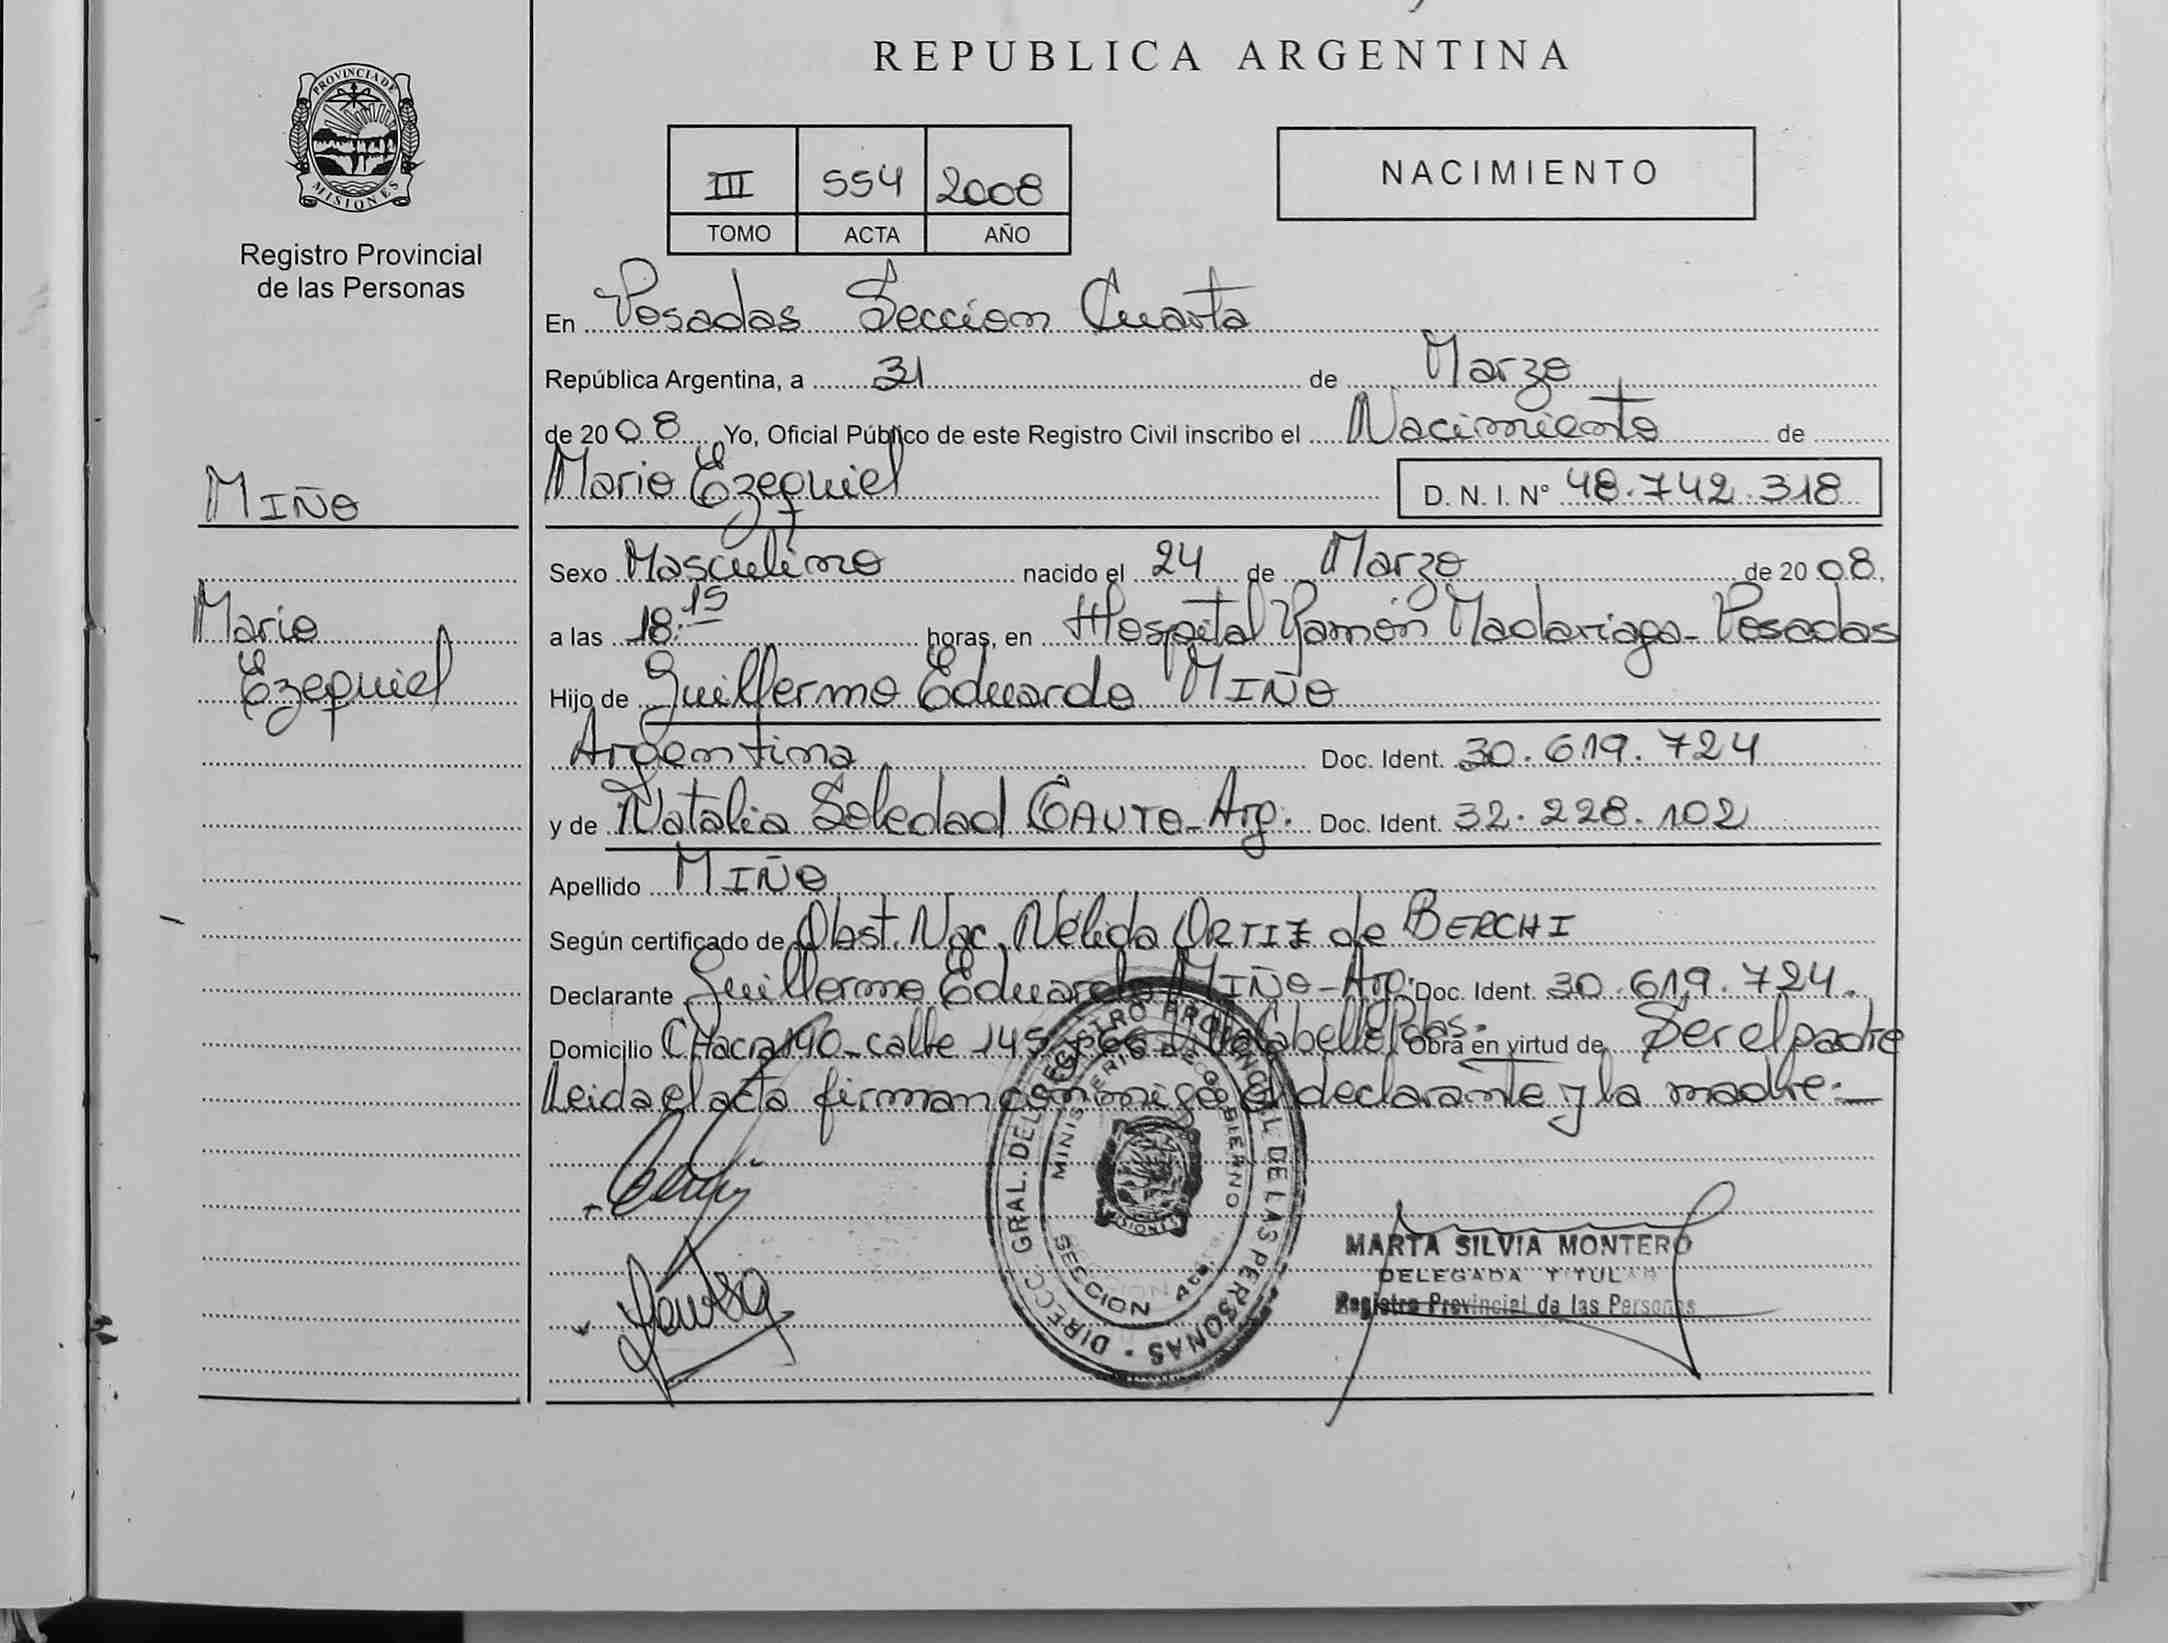 REPUBLICA ARGENTINA
PROVINCIA DE
MISIONES
Registro Provincial
de las Personas
III 554 2008
TOMO ACTA AÑO
NACIMIENTO
En Posadas Seccion Cuarta
República Argentina, a 31 de Marzo
de 2008 Yo, Oficial Público de este Registro Civil inscribo el Nacimiento de
Mario Ezequiel D. N. I. N° 48.742.318
MIÑO
Mario
Ezequiel
Sexo Masculino nacido el 24 de Marzo de 2008,
a las 18:15 horas, en Hospital Ramón Madariaga - Posadas
Hijo de Guillermo Eduardo MIÑO
Argentina Doc. Ident. 30.619.724
y de Natalia Soledad GAUTO - Arg. Doc. Ident. 32.228.102
Apellido MIÑO
Según certificado de Obst. Nac. Nélida ORTIZ de BERCHI
Declarante Guillermo Eduardo MIÑO - Arg. Doc. Ident. 30.619.724.
Domicilio CHacra 190 - calle 145 Pdas. Obra en virtud de Ser el padre
Leida el acta firman conmigo el declarante y la madre: -
DIRECC. GRAL. DEL REGISTRO PROVINCIAL DE LAS PERSONAS
MINISTERIO DE GOBIERNO
MISIONES
SECCION 4ta.
MARTA SILVIA MONTERO
DELEGADA TITULAR
Registro Provincial de las Personas